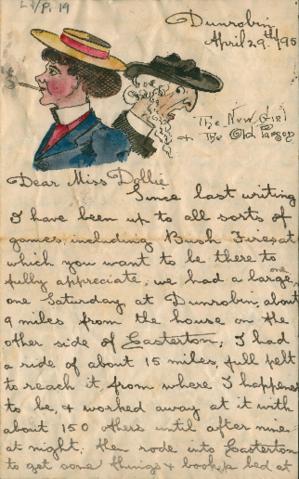 LI/P. 19
Dunrobin
April 29th/95
The New Girl
& The Old Parson
Dear Miss Dollie
Since last writing
I have been up to all sorts of
games, including Bush Fires at
which you want to be there to
fully appreciate, we had a large
one
one Saturday at Dunrobin, about
9 miles from the house on the
other side of Casterton, I had
a ride of about 15 miles, full pelt
to reach it from where I happened
to be, & worked away at it with
about 150 others until after nine
at night, then rode into Casterton
to get some things & book a bed at